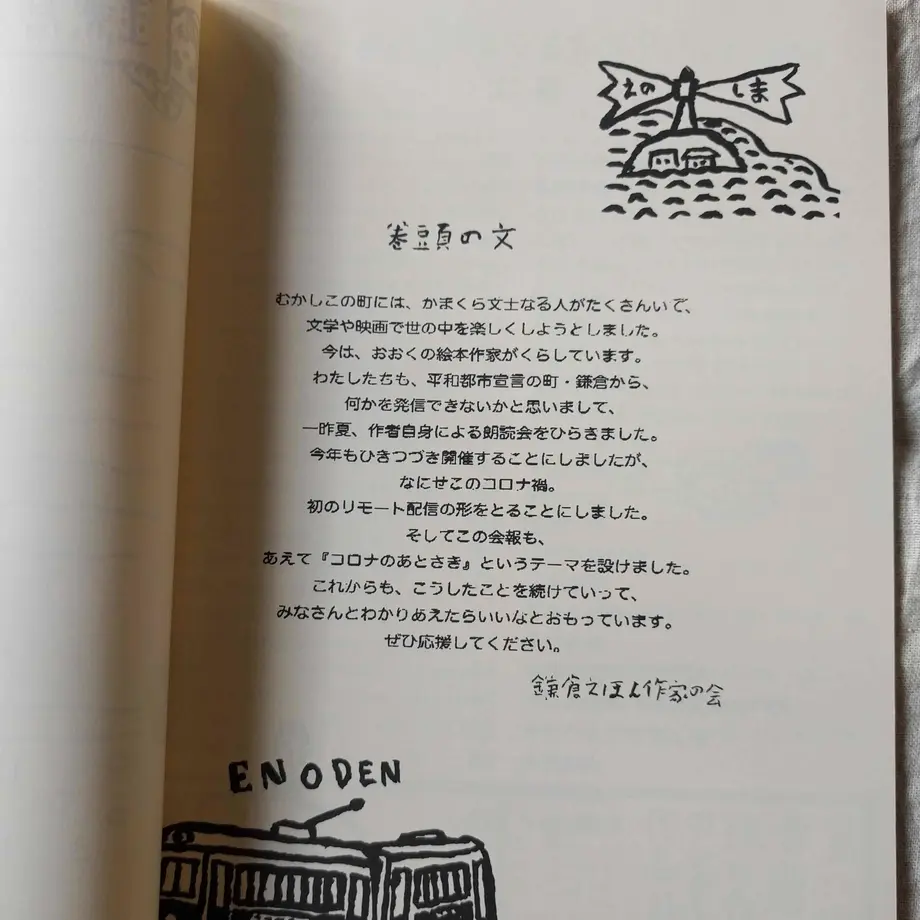 えの しま
巻頭の文
むかしこの町には、かまくら文士なる人がたくさんいて、
文学や映画で世の中を楽しくしようとしました。
今は、おおくの絵本作家がくらしています。
わたしたちも、平和都市宣言の町・鎌倉から、
何かを発信できないかと思いまして、
一昨夏、作者自身による朗読会をひらきました。
今年もひきつづき開催することにしましたが、
なにせこのコロナ禍。
初のリモート配信の形をとることにしました。
そしてこの会報も、
あえて『コロナのあとさき』というテーマを設けました。
これからも、こうしたことを続けていって、
みなさんとわかりあえたらいいなとおもっています。
ぜひ応援してください。
鎌倉えほん作家の会
ENODEN